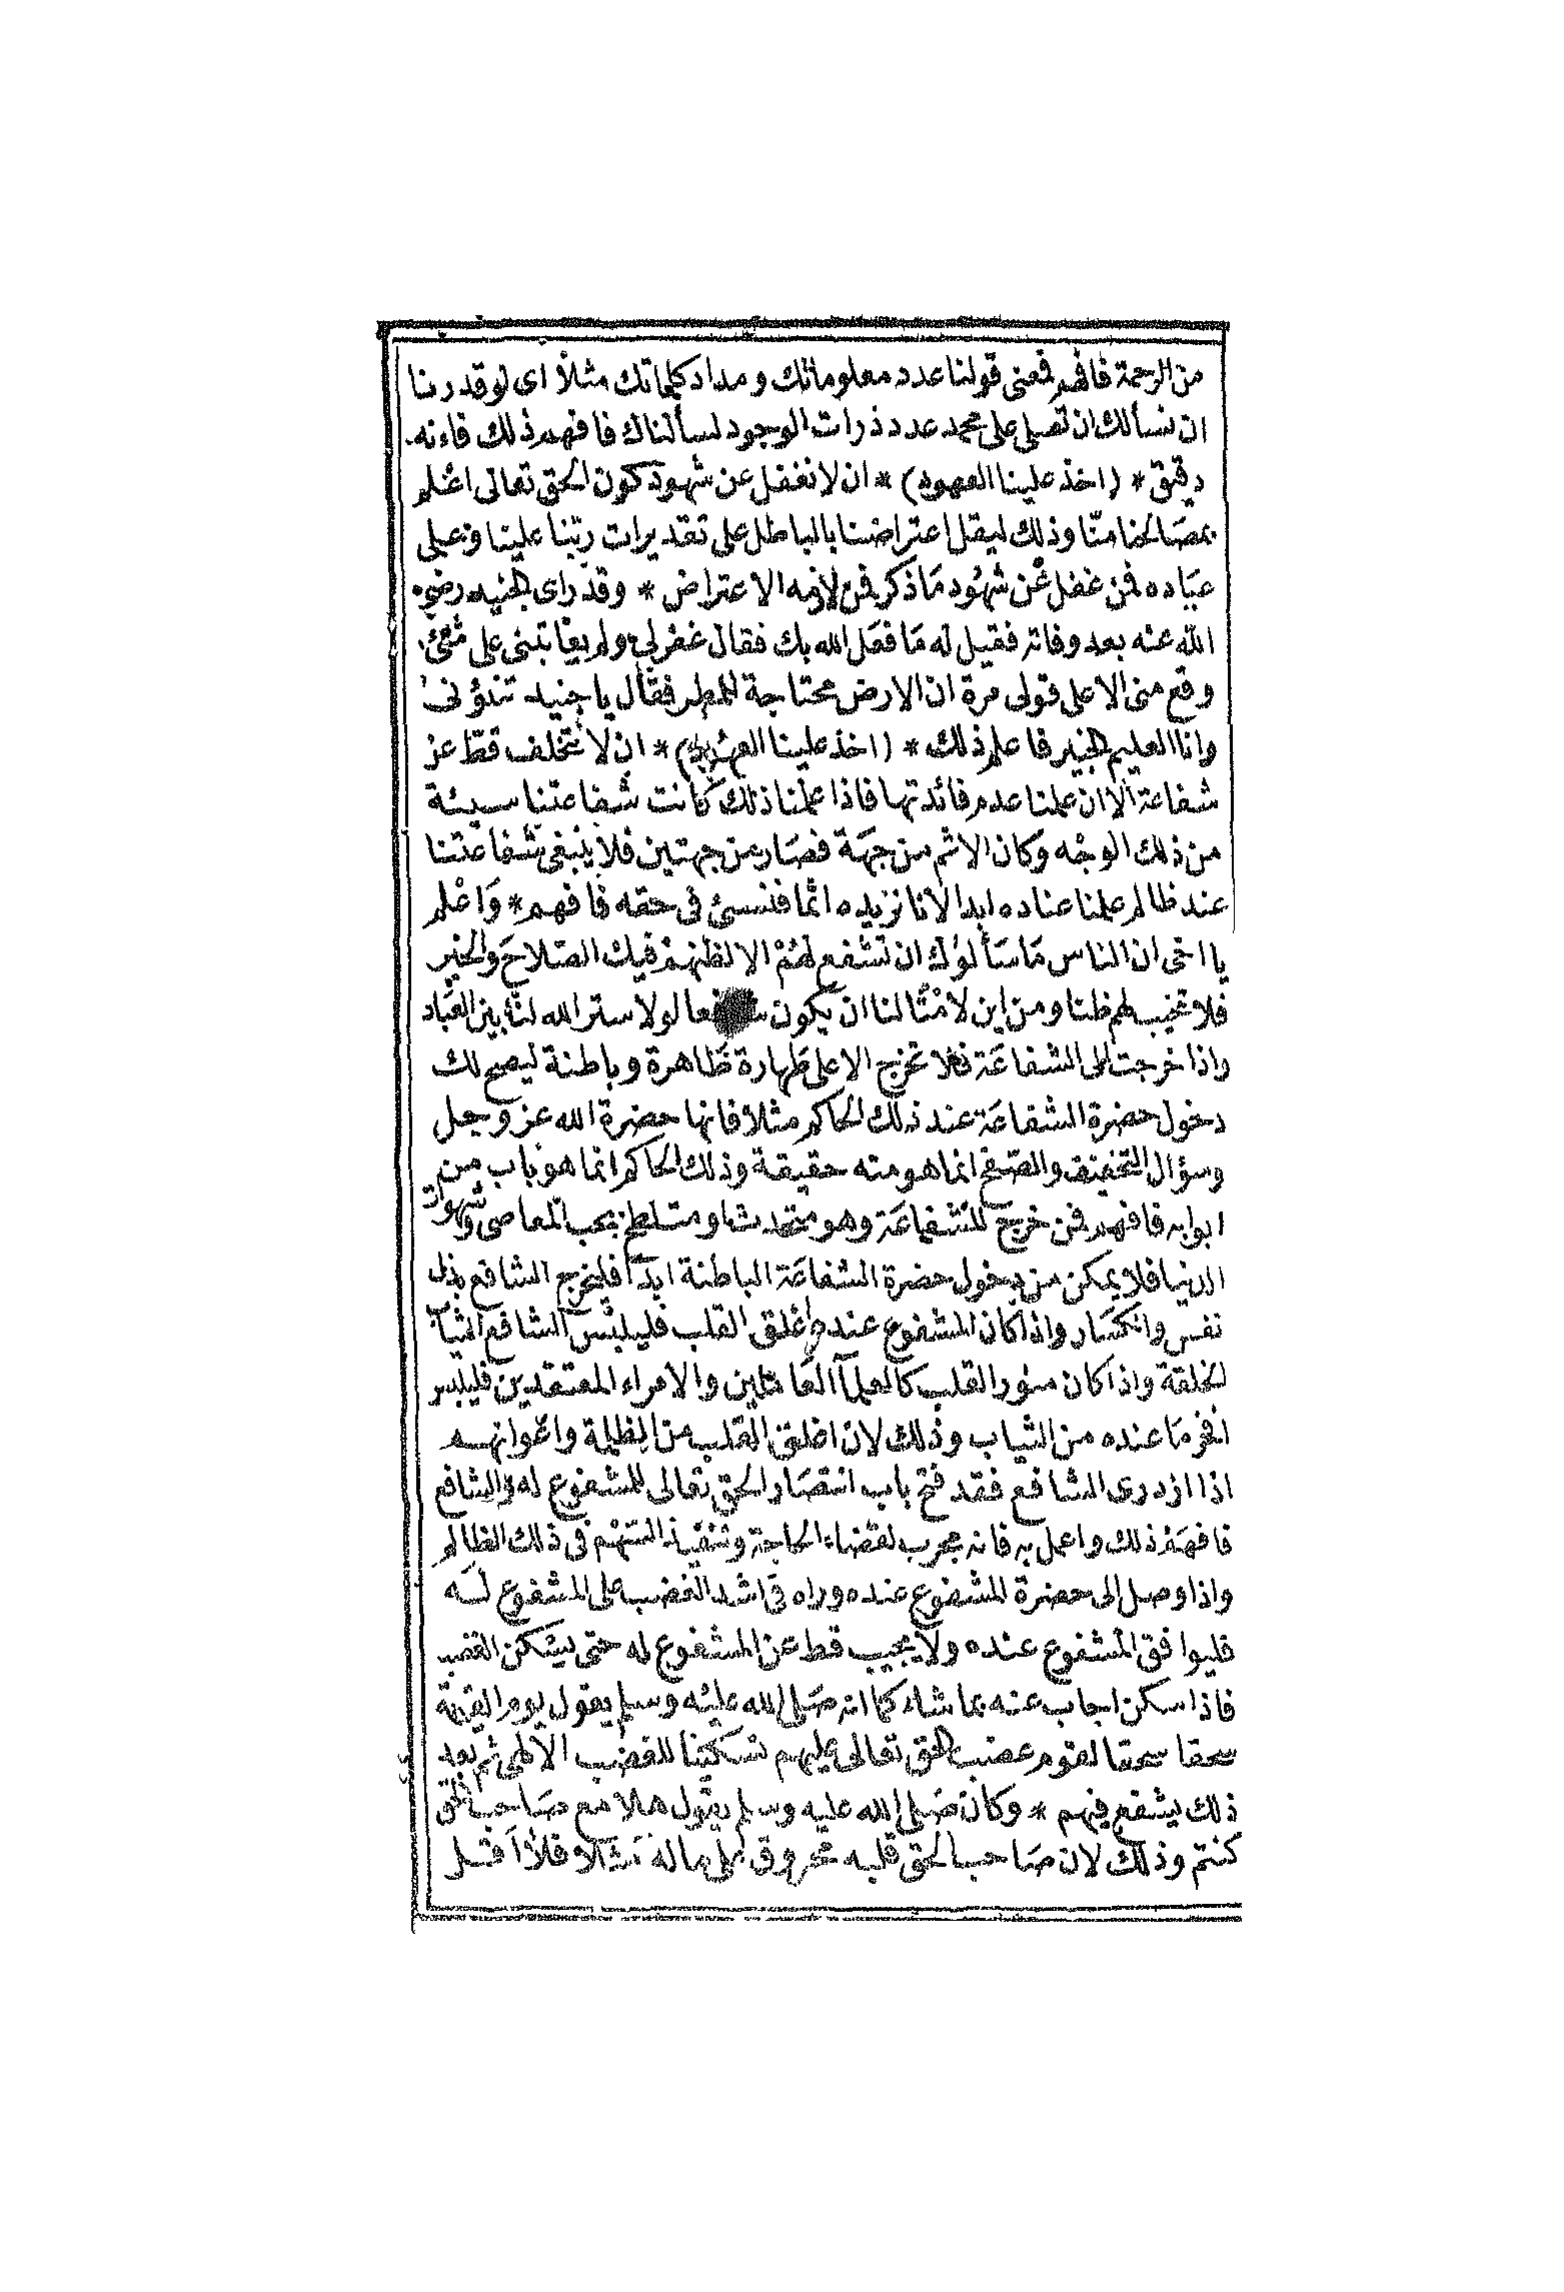 من الرحمة فافهم فمعنى قولنا عدد معلوماتك ومداد كلماتك مثلا اى لو قدرنا
ان نسألك ان تصلى على محمد عدد ذرات الوجود لسألناك فافهم ذلك فاءنه
دقيق * (اخذ علينا العهود) * ان لا نغفل عن شهود كون الحق تعالى اعلم
بمصالحنا منّا وذلك ليقل اعتراضنا بالباطل على تقديرات ربّنا علينا وعلى
عباده فمن غفل عن شهود ما ذكر فمن لازمه الاعتراض * وقد راى الجنيد رضي
الله عنه بعد وفاته فقيل له ما فعل الله بك فقال غفر لي ولم يعاتبنى على شئ
وقع منى الا على قولى مرة ان الارض محتاجة للمطر فقال يا جنيد تنبؤنى
وانا العليم الخبير فاعلم ذلك * (اخذ علينا العهود) * ان لا نتخلف قط عن
شفاعة الا ان علمنا عدم فائدتها فاذا علمنا ذلك كانت شفاعتنا سيئة
من ذلك الوجه وكان الاثم من جهة فصار من جهتين فلا ينبغى شفاعتنا
عند ظالم علمنا عناده ابدا لانا نزيده اثما فنسئ فى حقه فافهم * واعلم
يا اخى ان الناس ما سألوك ان تشفع لهم الا لظنهم فيك الصلاح والخير
فلا تخيب لهم ظنا ومن اين لامثالنا ان يكون شافعا لولا ستر الله لنا بين العباد
واذا خرجت الى الشفاعة فلا تخرج الا على طهارة ظاهرة وباطنة ليصح لك
دخول حضرة الشفاعة عند ذلك الحاكم مثلا فانها حضرة الله عز وجل
وسؤال التخفيف والصفح انما هو منه حقيقة وذلك الحاكم انما هو باب من
ابوابه فافهم فمن خرج للشفاعة وهو متحدث او متلطخ بحب المعاصى وشهوات
الدنيا فلا يمكن من دخول حضرة الشفاعة الباطنة ابدا فليخرج الشافع بذل
نفس وانكسار واذا كان المشفوع عنده اغلق القلب فليلبس الشافع الثياب
الخلقة واذا كان منور القلب كالعلماء العاملين والامراء المعتقدين فليلبس
افخر ما عنده من الثياب وذلك لان اغلق القلب من الظلمة واعوانهم
اذا ازدرى الشافع فقد فتح باب انتصار الحق تعالى للمشفوع له والشافع
فافهم ذلك واعمل به فانه مجرب لقضاء الحاجة وتنفيذ السهم فى ذلك الظالم
واذا وصل الى حضرة المشفوع عنده وراه فى اشد الغضب على المشفوع له
فليوافق المشفوع عنده ولا يجيب قط عن المشفوع له حتى يسكن الغضب
فاذا سكن اجاب عنه بما شاء كما انه صلى الله عليه وسلم يقول يوم القيمة
سحقا سحقا لقوم غضب الحق تعالى عليهم تسكينا للغضب الالهى ثم بعد
ذلك يشفع فيهم * وكان صلى الله عليه وسلم يقول هلا مع صاحب الحق
كنتم وذلك لان صاحب الحق قلبه محروق على ماله مثلا فلا اقل